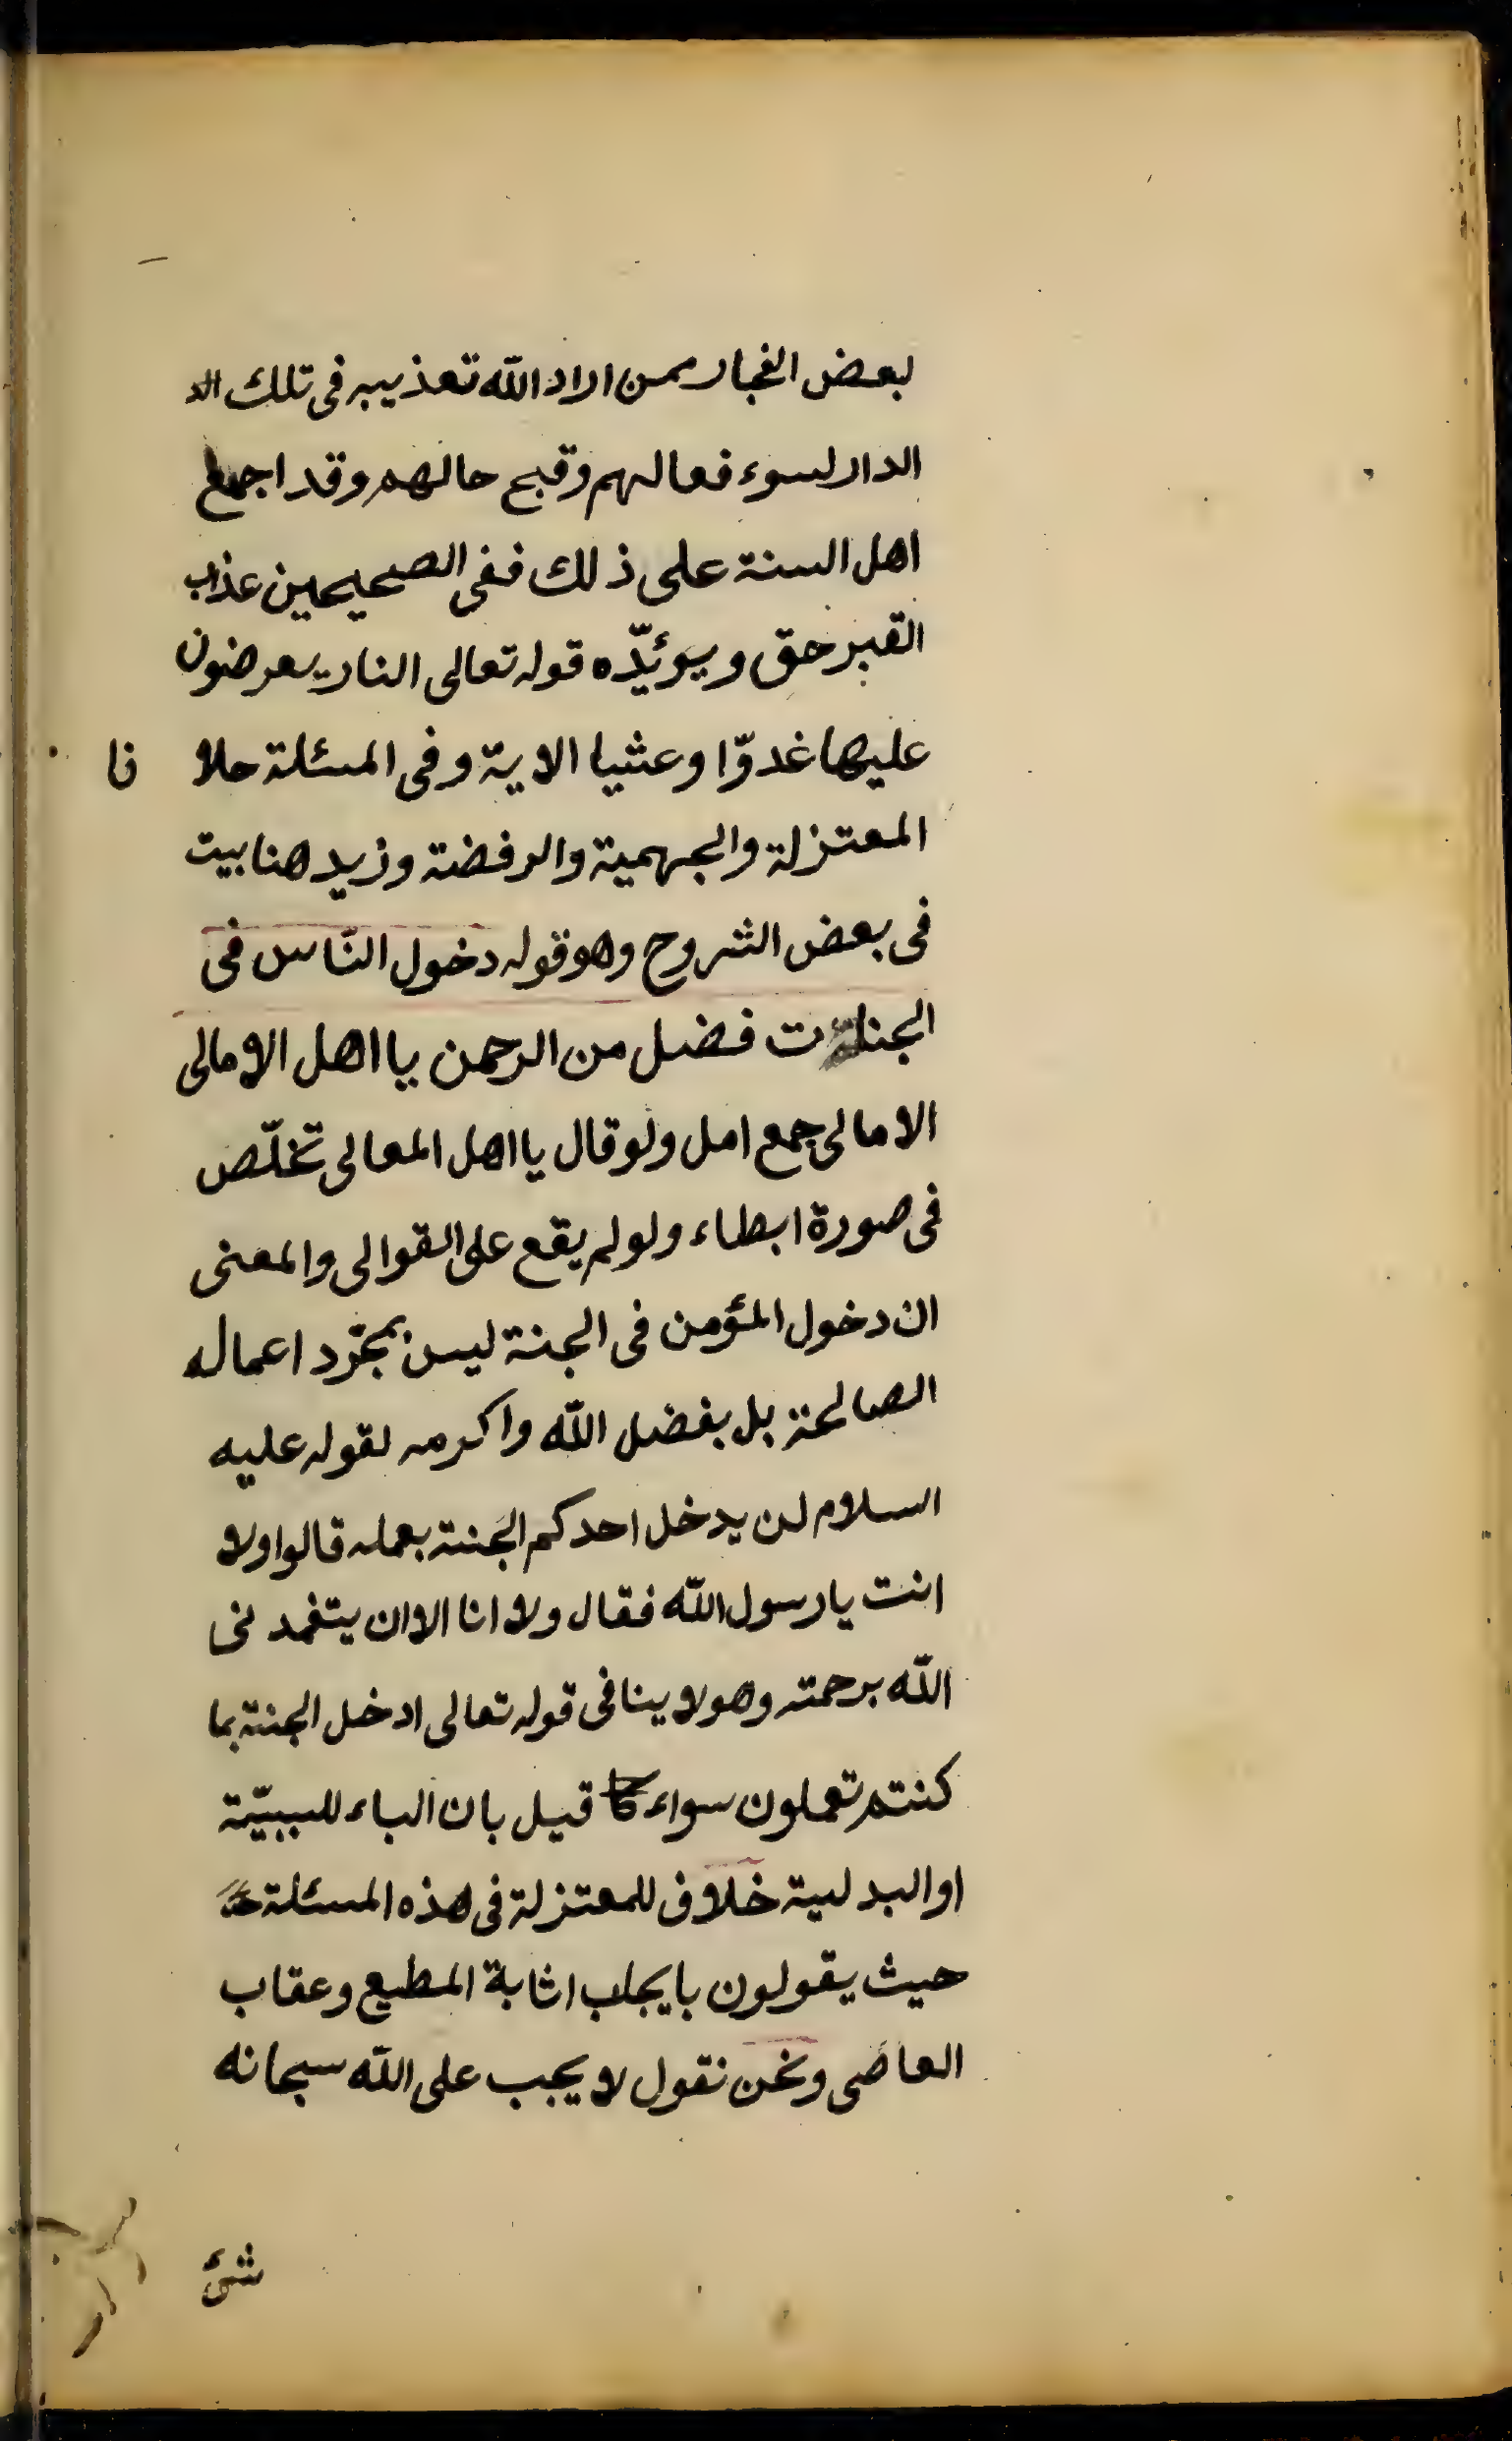 بعض الفجار ممن اراد الله تعذيبه فى تلك الد
الدار لسوء فعالهم وقبح حالهم وقد اجمع
اهل السنة على ذلك ففى الصحيحين عذاب
القبر حق ويوئيّده قوله تعالى النار يعرضون
عليها غدوّا وعشيا الاية وفى المسئلة حلا فا
المعتزلة والجهمية والرفضة وزيد هنا بيت
فى بعض الشروح وهو قوله دخول النّاس فى
الجنات فضل من الرحمن يا اهل الامالى
الامالى جمع امل ولو قال يا اهل المعالى تخلّص
فى صورة ابطاء ولو لم يقع على القوالى والمعنى
ان دخول المؤمن فى الجنة ليس بمجرّد اعماله
الصالحة بل بفضل الله واكرمه لقوله عليه
السلام لن يدخل احدكم الجنة بعمله قالوا ولا
انت يا رسول الله فقال ولا انا الا ان يتغمد نى
الله برحمته وهو لا ينافى قوله تعالى ادخل الجنة بما
كنتم تعملون سواء قيل بان الباء للسببيّة
او البدلية خلاف للمعتزلة فى هذه المسئلة
حيث يقولون بايجاب اثابة المطيع وعقاب
العاصى ونحن نقول لا يجب على الله سبحانه
شئ